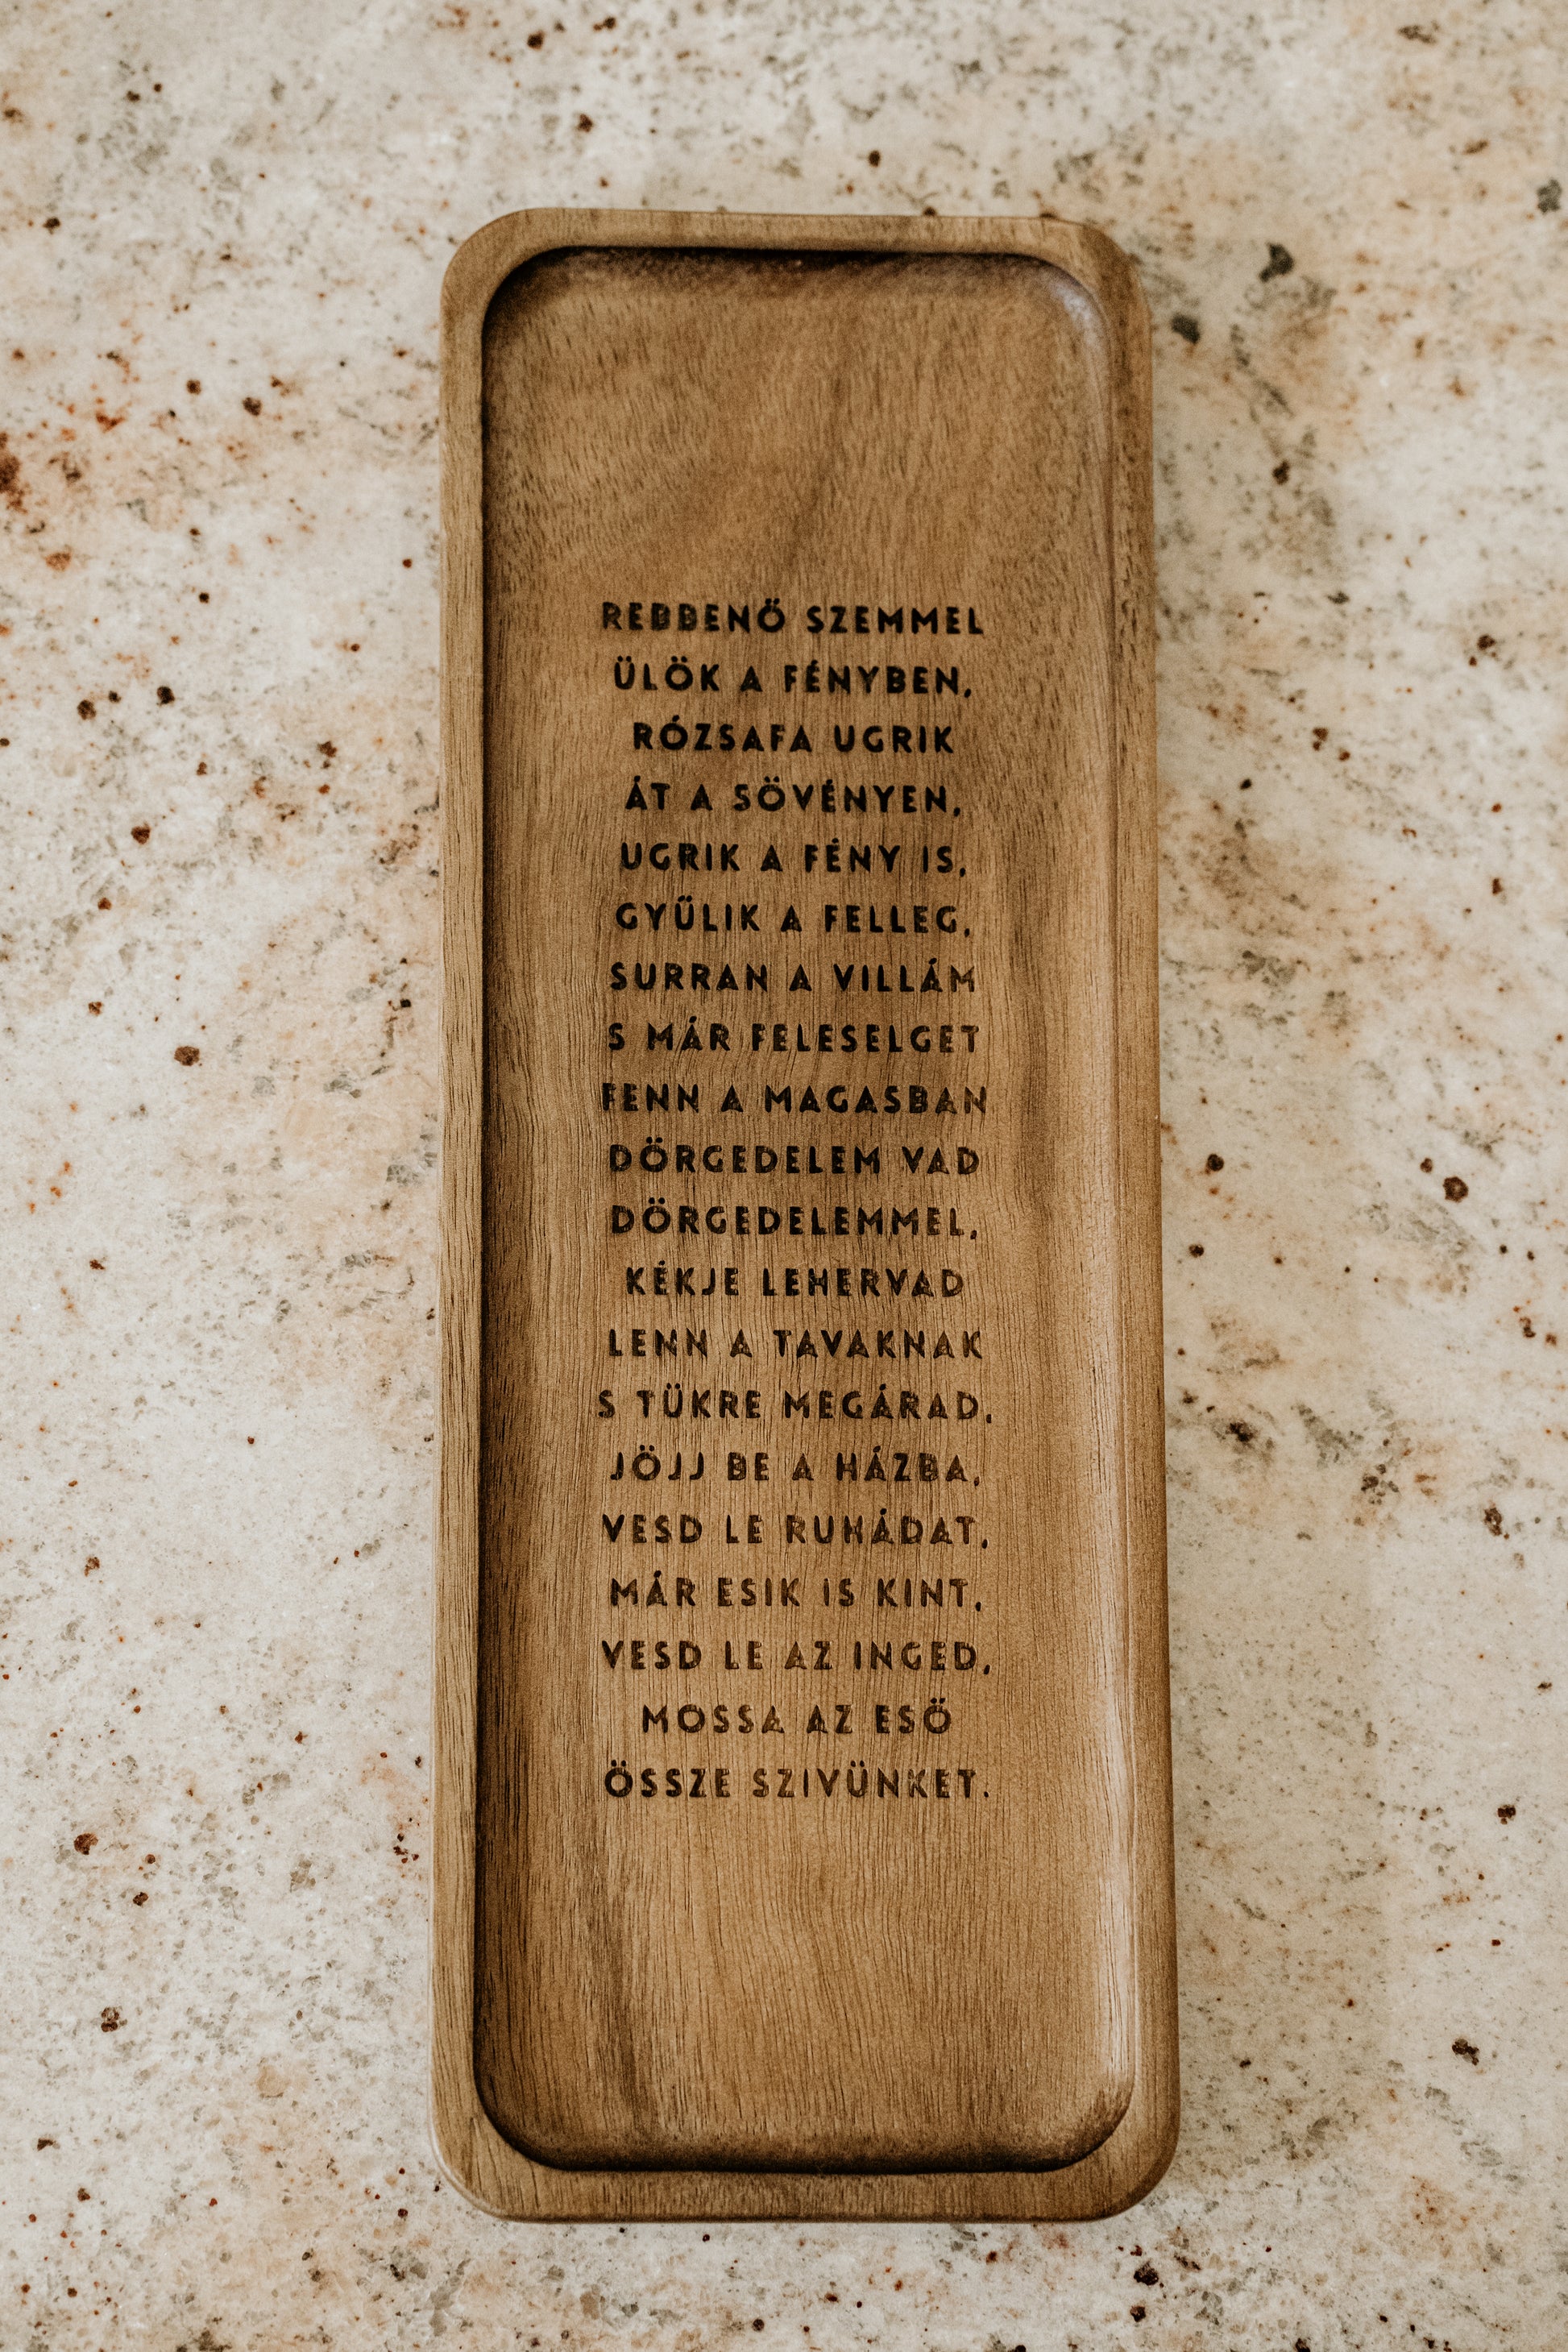 REBBENŐ SZEMMEL
ÜLÖK A FÉNYBEN,
RÓZSAFA UGRIK
ÁT A SÖVÉNYEN,
UGRIK A FÉNY IS,
GYŰLIK A FELLEG,
SURRAN A VILLÁM
S MÁR FELESELGET
FENN A MAGASBAN
DÖRGEDELEM VAD
DÖRGEDELEMMEL,
KÉKJE LEHERVAD
LENN A TAVAKNAK
S TÜKRE MEGÁRAD,
JÖJJ BE A HÁZBA,
VESD LE RUHÁDAT,
MÁR ESIK IS KINT,
VESD LE AZ INGED,
MOSSA AZ ESŐ
ÖSSZE SZIVÜNKET.